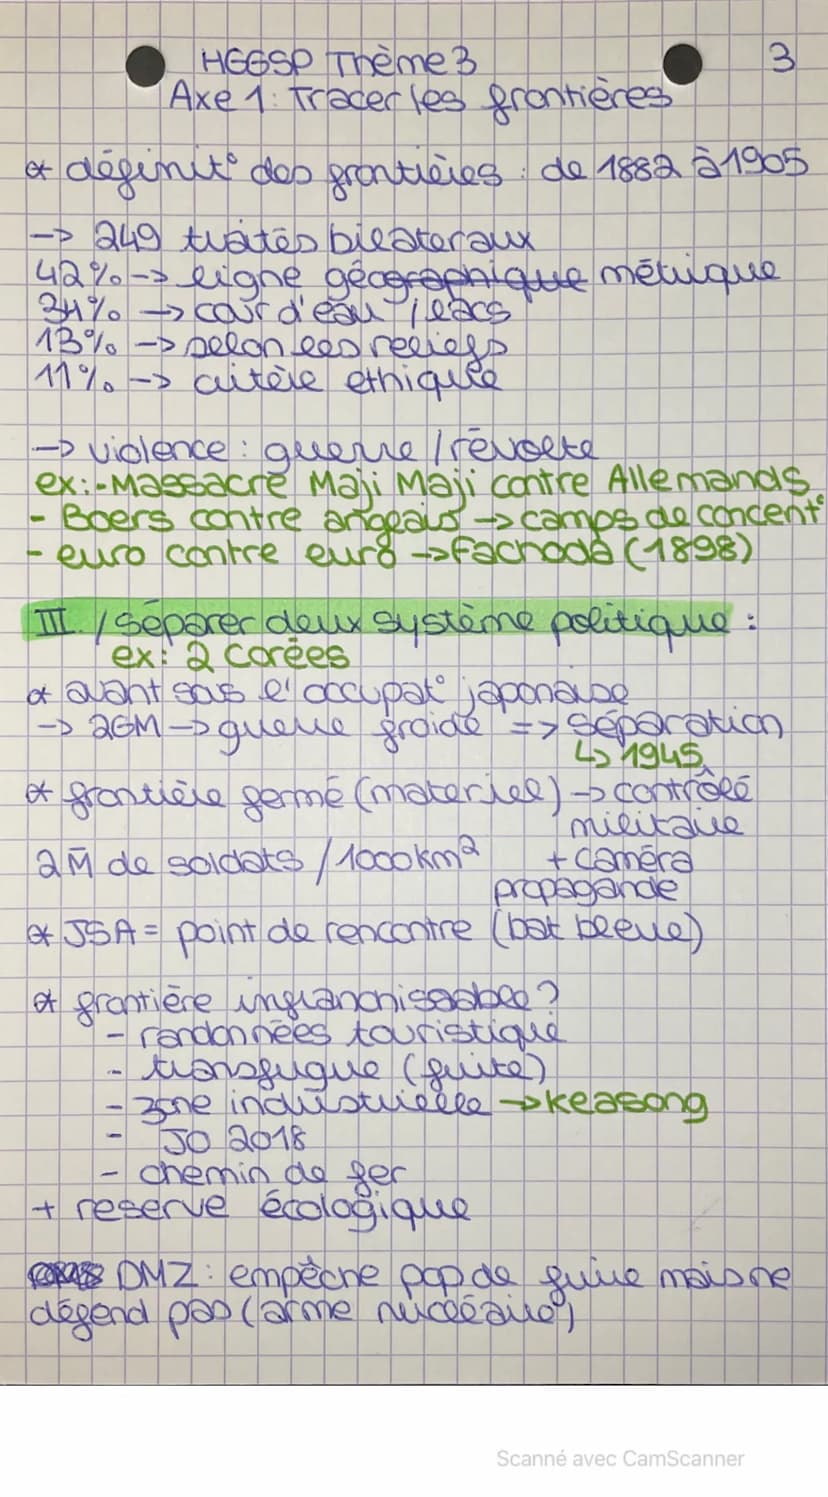 HGGSP Thème 3
3
Axe 1: Tracer les frontières
* définit° des frontières : de 1882 à 1905
-> 249 traités bilatéraux
42% -> ligne géographique métrique
34% -> cour d'eau / lacs
13% -> selon les reliefs
11% -> critère ethique
-> violence : guerre / révolte
ex: - Massacre Maji Maji contre Allemands
- Boers contre anglais -> camps de concent°
- euro contre euro -> Fachoda (1898)
III / Séparer deux système politique :
ex: 2 Corées
* avant sous l'occupat° japonaise
-> 2GM -> guerre froide => séparation
↳ 1945
* frontière fermé (materiel) -> contrôlé
militaire
2M de soldats / 1000km² + caméra
propagande
* JSA = point de rencontre (bat bleue)
* frontière infranchissable ?
- randonnées touristique
- transfugue (fuite)
- zone industrielle -> Keasong
- JO 2018
- chemin de fer
+ reserve écologique
DMZ : empêche pop de fuire mais ne
défend pas (arme nucléaire)
Scanné avec CamScanner